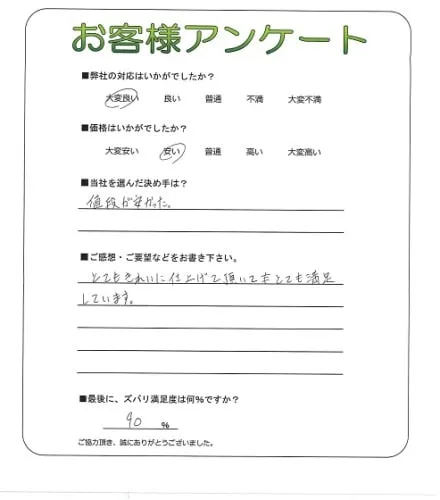 お客様アンケート
■弊社の対応はいかがでしたか?
大変良い 良い 普通 不満 大変不満
■価格はいかがでしたか?
大変安い 安い 普通 高い 大変高い
■当社を選んだ決め手は?
値段が安かった。
■ご感想・ご要望などをお書き下さい。
とてもきれいに仕上げて頂いて とても満足
しています。
■最後に、ズバリ満足度は何%ですか?
90 %
ご協力頂き、誠にありがとうございました。